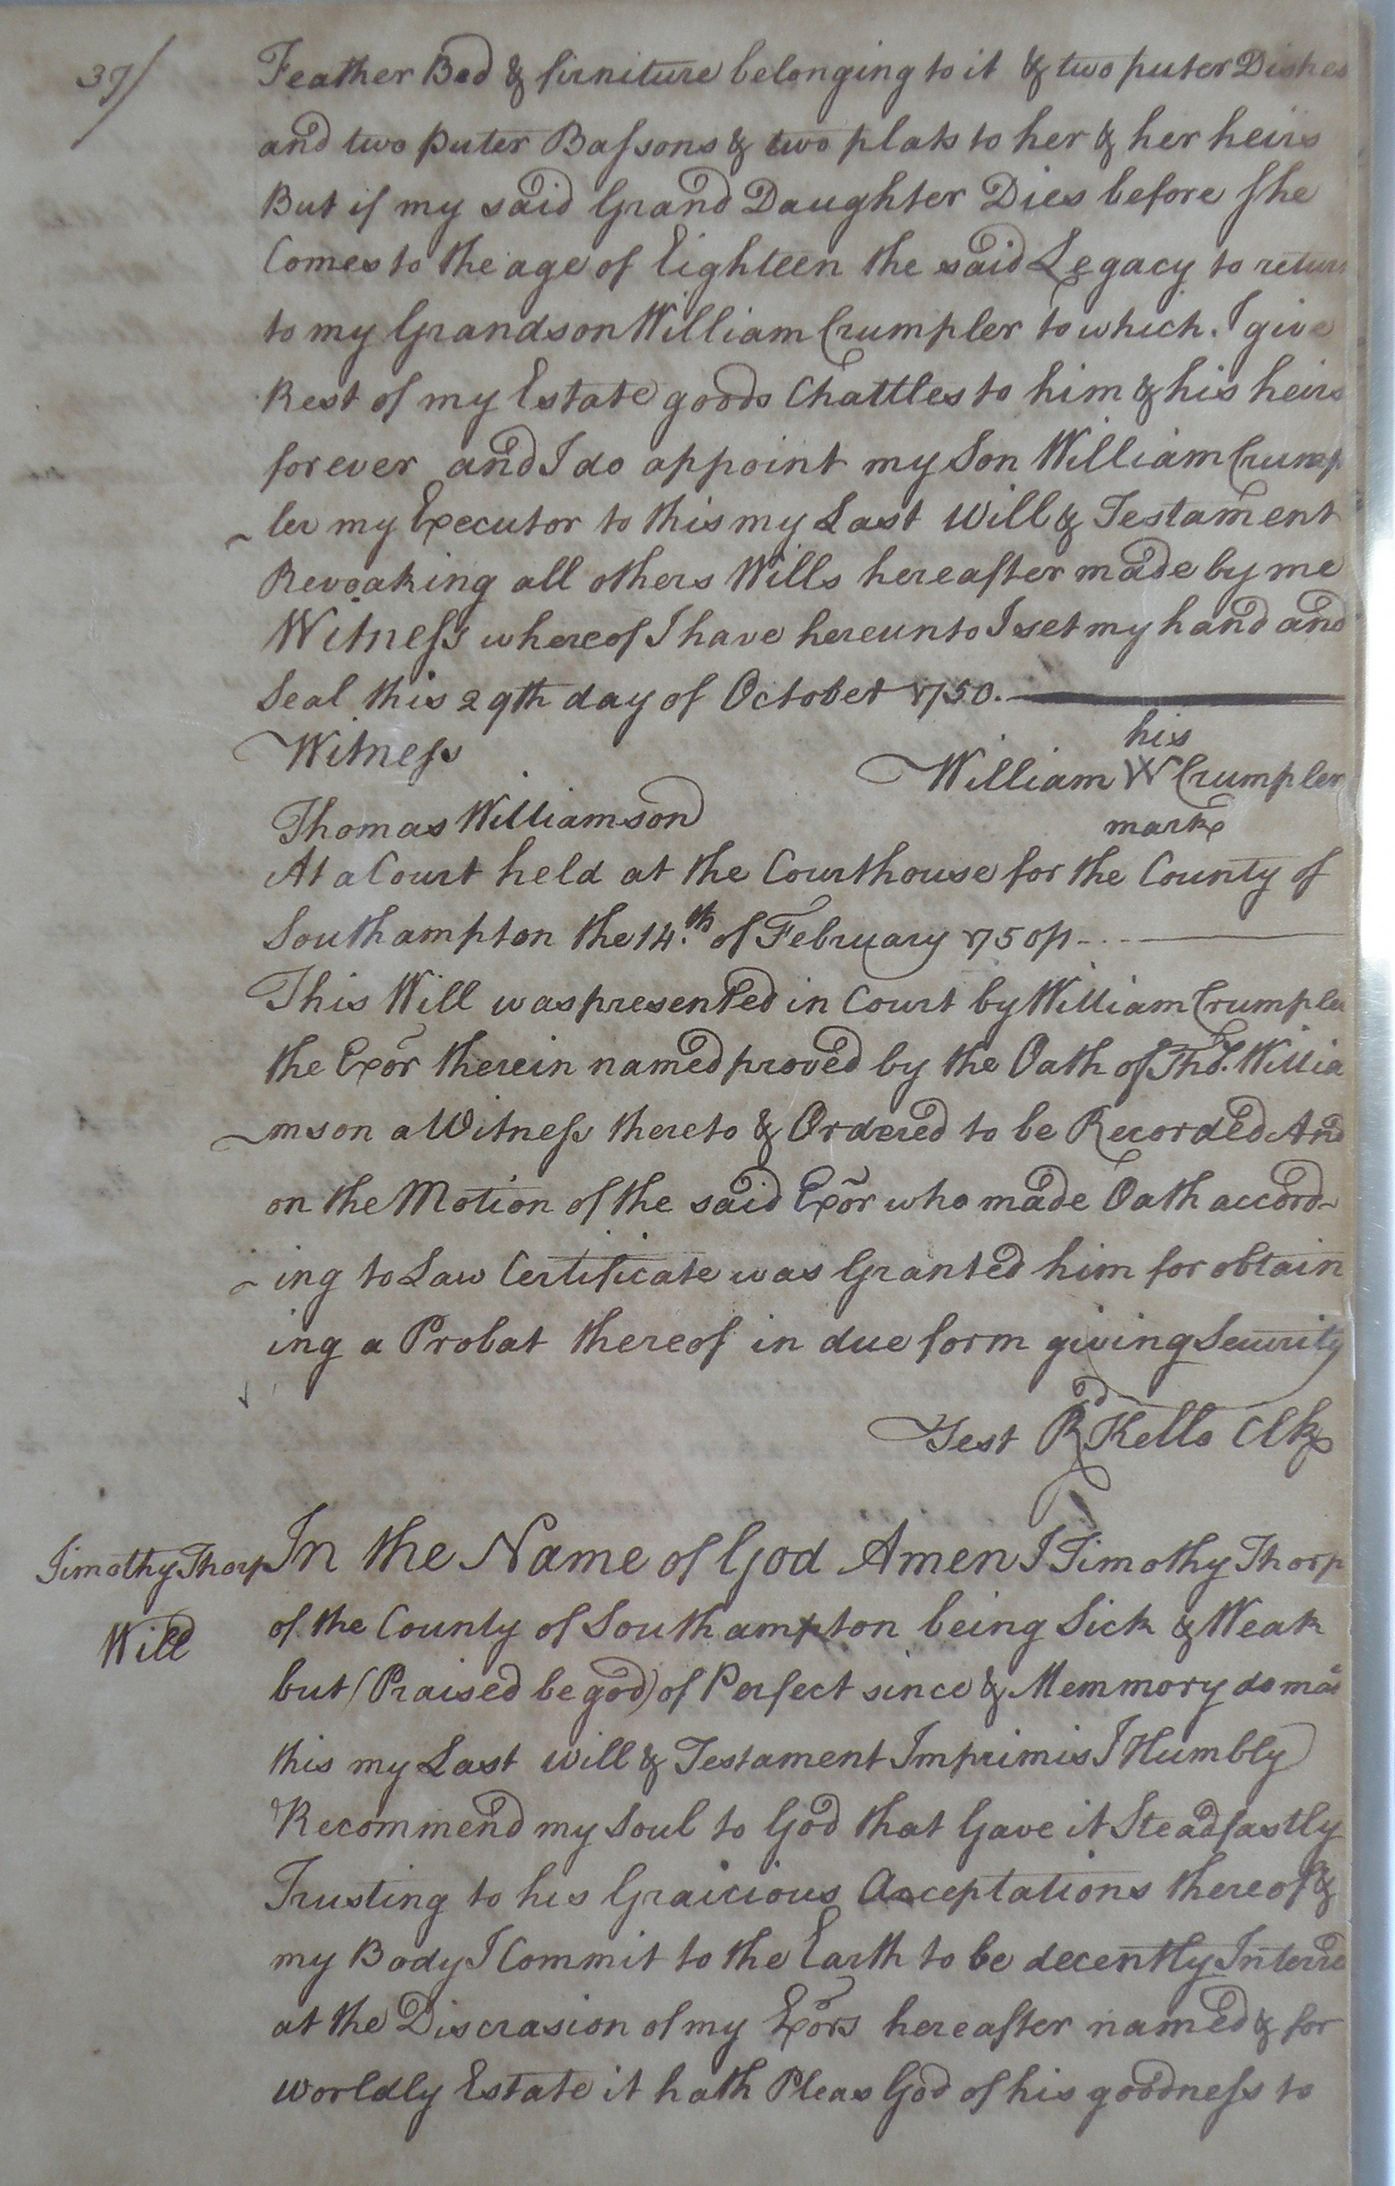 37/
Feather Bed & firniture belonging to it & two puter Dishes
and two puter Bassons & two plats to her & her heirs
But if my said Grand Daughter Dies before she
Comes to the age of Eighteen the said Legacy to return
to my Grandson William Crumpler to which I give
Rest of my Estate goods Chattles to him & his heirs
forever and I do appoint my Son William Crump
ler my Executor to this my Last Will & Testament
Revoaking all others Wills hereafter made by me
Witness whereof I have hereunto I set my hand and
Seal this 29th day of October 1750.
Witness
his
William W Crumpler
Thomas Williamson
mark
At a Court held at the Courthouse for the County of
Southampton the 14.th of February 1750/1
This Will was presented in Court by William Crumpler
the Exor therein named proved by the Oath of Thos. Willia
mson a Witness thereto & Ordered to be Recorded And
on the Motion of the said Exor who made Oath accord
ing to Law Certificate was Granted him for obtain
ing a Probat thereof in due form giving Security
Test Rd Kello Clk
Timothy Thorp
Will
In the Name of God Amen I Timothy Thorp
of the County of Southampton being Sick & Weak
but (Praised be god) of Perfect since & Memmory do
this my Last will & Testament Imprimis I Humbly
Recommend my Soul to God that Gave it Steadfastly
Trusting to his Graicious Acceptations thereof &
my Body I Commit to the Earth to be decently Interrd
at the Discrasion of my Exors hereafter named & for
worldly Estate it hath Pleas God of his goodness to